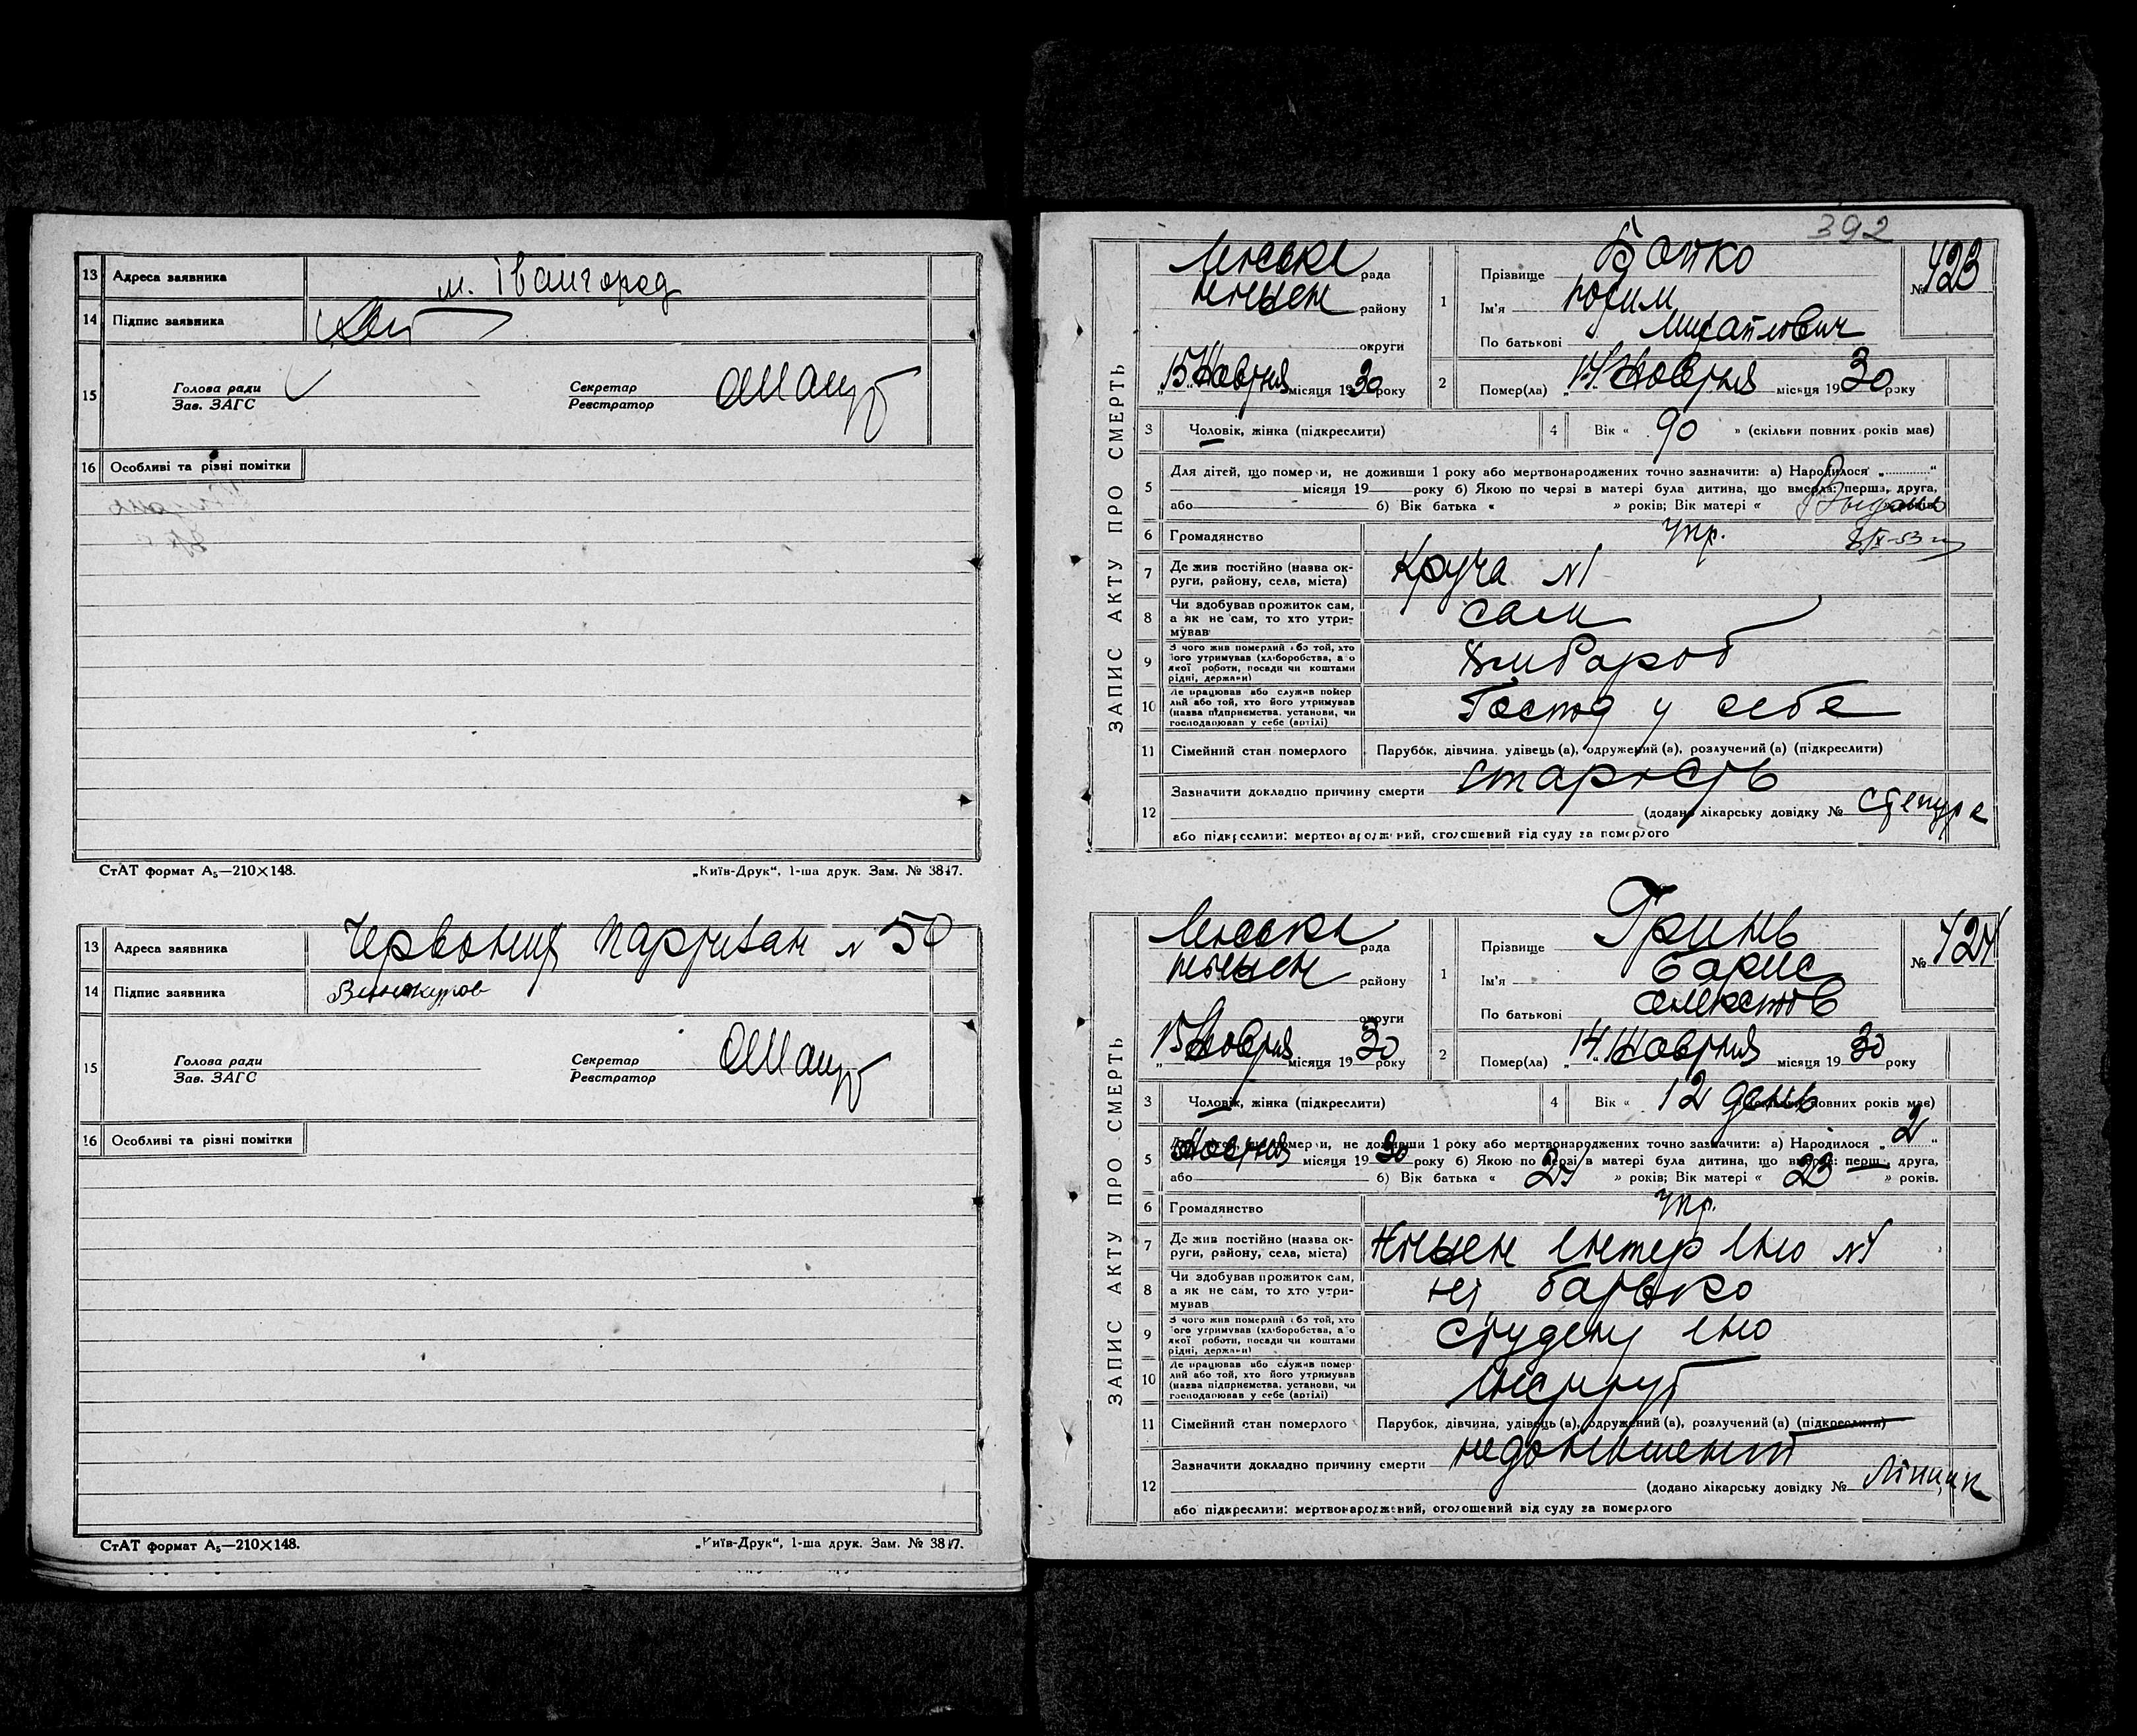 13 Адреса заявника м. Івангород
14 Підпис заявника
15 Голова ради Зав. ЗАГС Секретар Реєстратор
16 Особливі та різні помітки
СтАТ формат А₅—210×148. „Київ-Друк“, 1-ша друк. Зам. № 3847.
13 Адреса заявника Червоних Партизан № 50
14 Підпис заявника Винокуров
15 Голова ради Зав. ЗАГС Секретар Реєстратор
16 Особливі та різні помітки
СтАТ формат А₅—210×148. „Київ-Друк“, 1-ша друк. Зам. № 3847.
392
ЗАПИС АКТУ ПРО СМЕРТЬ
рада
району
округи
15 Ноября місяця 1930 року
1 Прізвище Бойко
Ім'я Юхим
По батькові Михайлович
№ 423
2 Помер(ла) „ 14 Ноября місяця 1930 року
3 Чоловік, жінка (підкреслити)
4 Вік « 90 » (скільки повних років має)
5 Для дітей, що померли, не доживши 1 року або мертвонароджених точно зазначити: а) Народилося „ “
місяця 19 року б) Якою по черзі в матері була дитина, що вмерла: перша, друга,
або б) Вік батька « » років; Вік матері «
6 Громадянство Укр.
7 Де жив постійно (назва округи, району, села, міста) Круча №1
8 Чи здобував прожиток сам, а як не сам, то хто утримував сам
9 З чого жив померлий або той, хто його утримував (хліборобства, або якої роботи, посади чи коштами рідні, держави) хлібороб
10 Де працював або служив померлий або той, хто його утримував (назва підприємства, установи, чи господарював у себе (артілі) Господ у себе
11 Сімейний стан померлого Парубок, дівчина, удівець (а), одружений (а), розлучений (а) (підкреслити)
12 Зазначити докладно причину смерти старість
(додано лікарську довідку №
або підкреслити: мертвонароджений, оголошений від суду за померлого
ЗАПИС АКТУ ПРО СМЕРТЬ
рада
району
округи
15 Ноября місяця 1930 року
1 Прізвище Гринь
Ім'я Борис
По батькові
№ 424
2 Помер(ла) „ 14 Ноября місяця 1930 року
3 Чоловік, жінка (підкреслити)
4 Вік « 12 день повних років має)
5 Для дітей, що померли, не доживши 1 року або мертвонароджених точно зазначити: а) Народилося „ 2 “
Ноября місяця 1930 року б) Якою по черзі в матері була дитина, що вмерла: перша, друга,
або б) Вік батька « 24 » років; Вік матері « 23 » років.
6 Громадянство Укр.
7 Де жив постійно (назва округи, району, села, міста) Ніжен Інтер Іно №1
8 Чи здобував прожиток сам, а як не сам, то хто утримував ні батько
9 З чого жив померлий або той, хто його утримував (хліборобства, або якої роботи, посади чи коштами рідні, держави) студент Іно
10 Де працював або служив померлий або той, хто його утримував (назва підприємства, установи, чи господарював у себе (артілі)
11 Сімейний стан померлого Парубок, дівчина, удівець (а), одружений (а), розлучений (а) (підкреслити)
12 Зазначити докладно причину смерти
(додано лікарську довідку №
або підкреслити: мертвонароджений, оголошений від суду за померлого